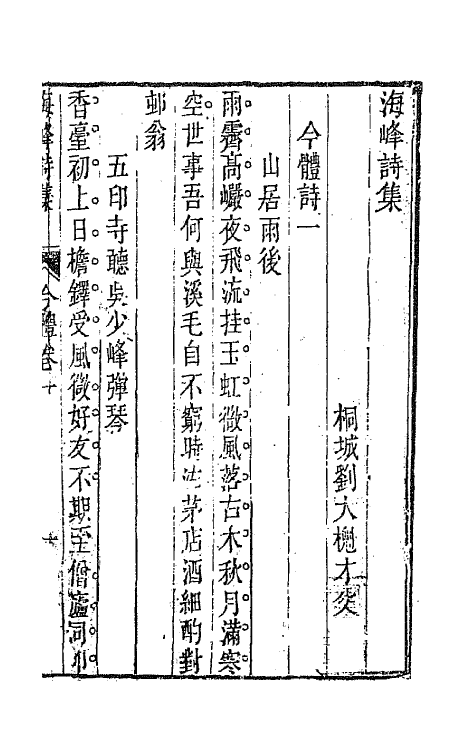 海峰詩集
桐城劉大櫆才甫
今體詩一
山居雨後
雨霽高巘夜飛流挂玉虹微風落古木秋月滿寒
空世事吾何與溪毛自不窮時沽茅店酒細酌對
邨翁
五印寺聽吳少峰彈琴
香臺初上日檐鐸受風微好友不期至僧廬同叩
海峰詩集 今體卷一